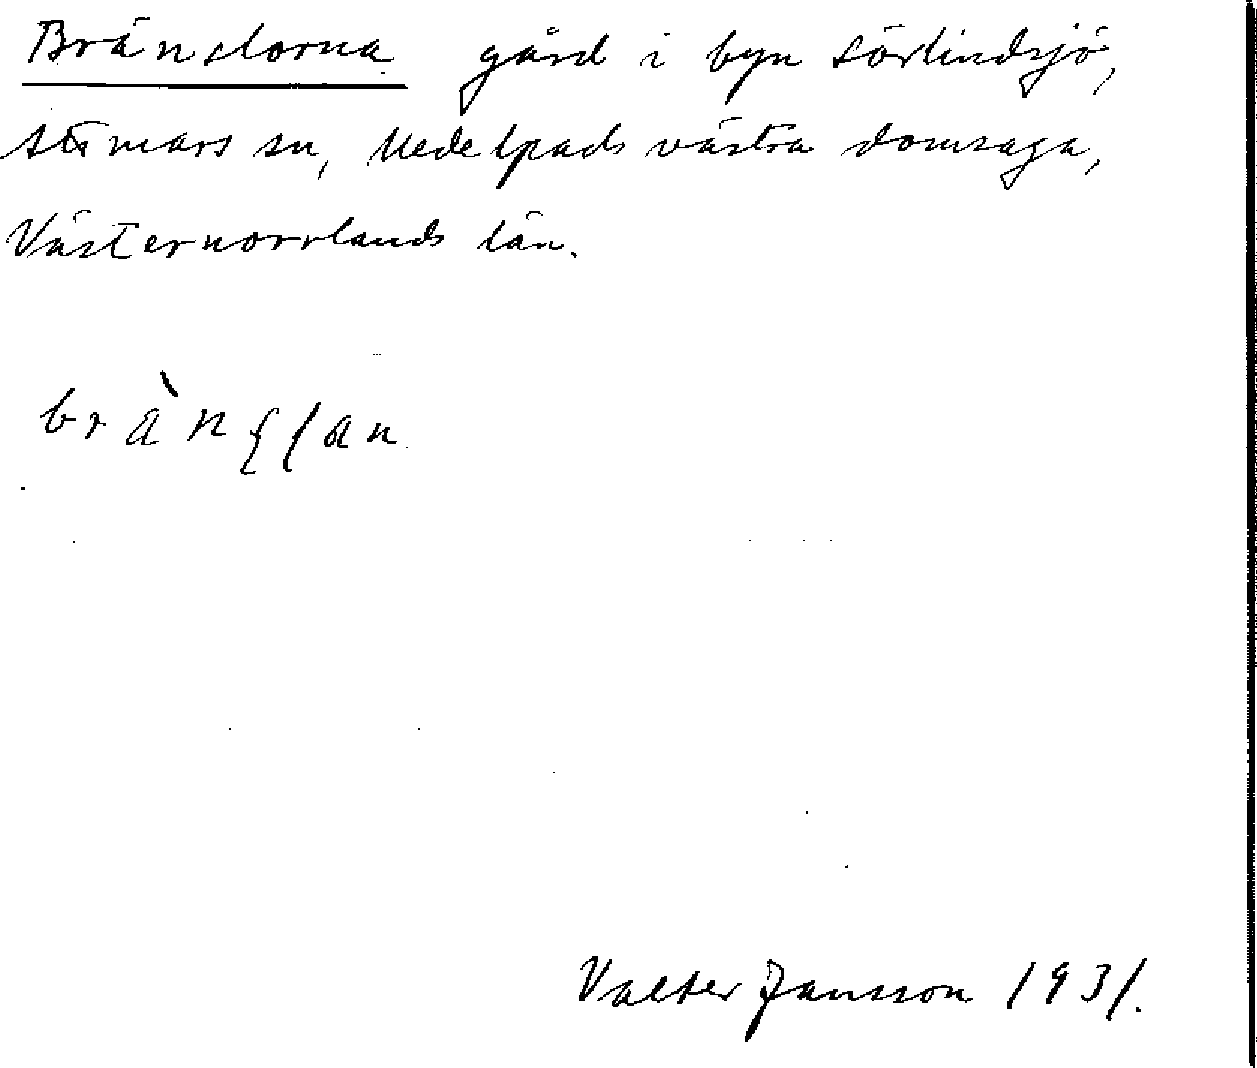 Brändorna gård i byn Sörlindsjö,
Attmars sn, Medelpads västra domsaga,
Västernorrlands län.
Valter Jansson 1931.